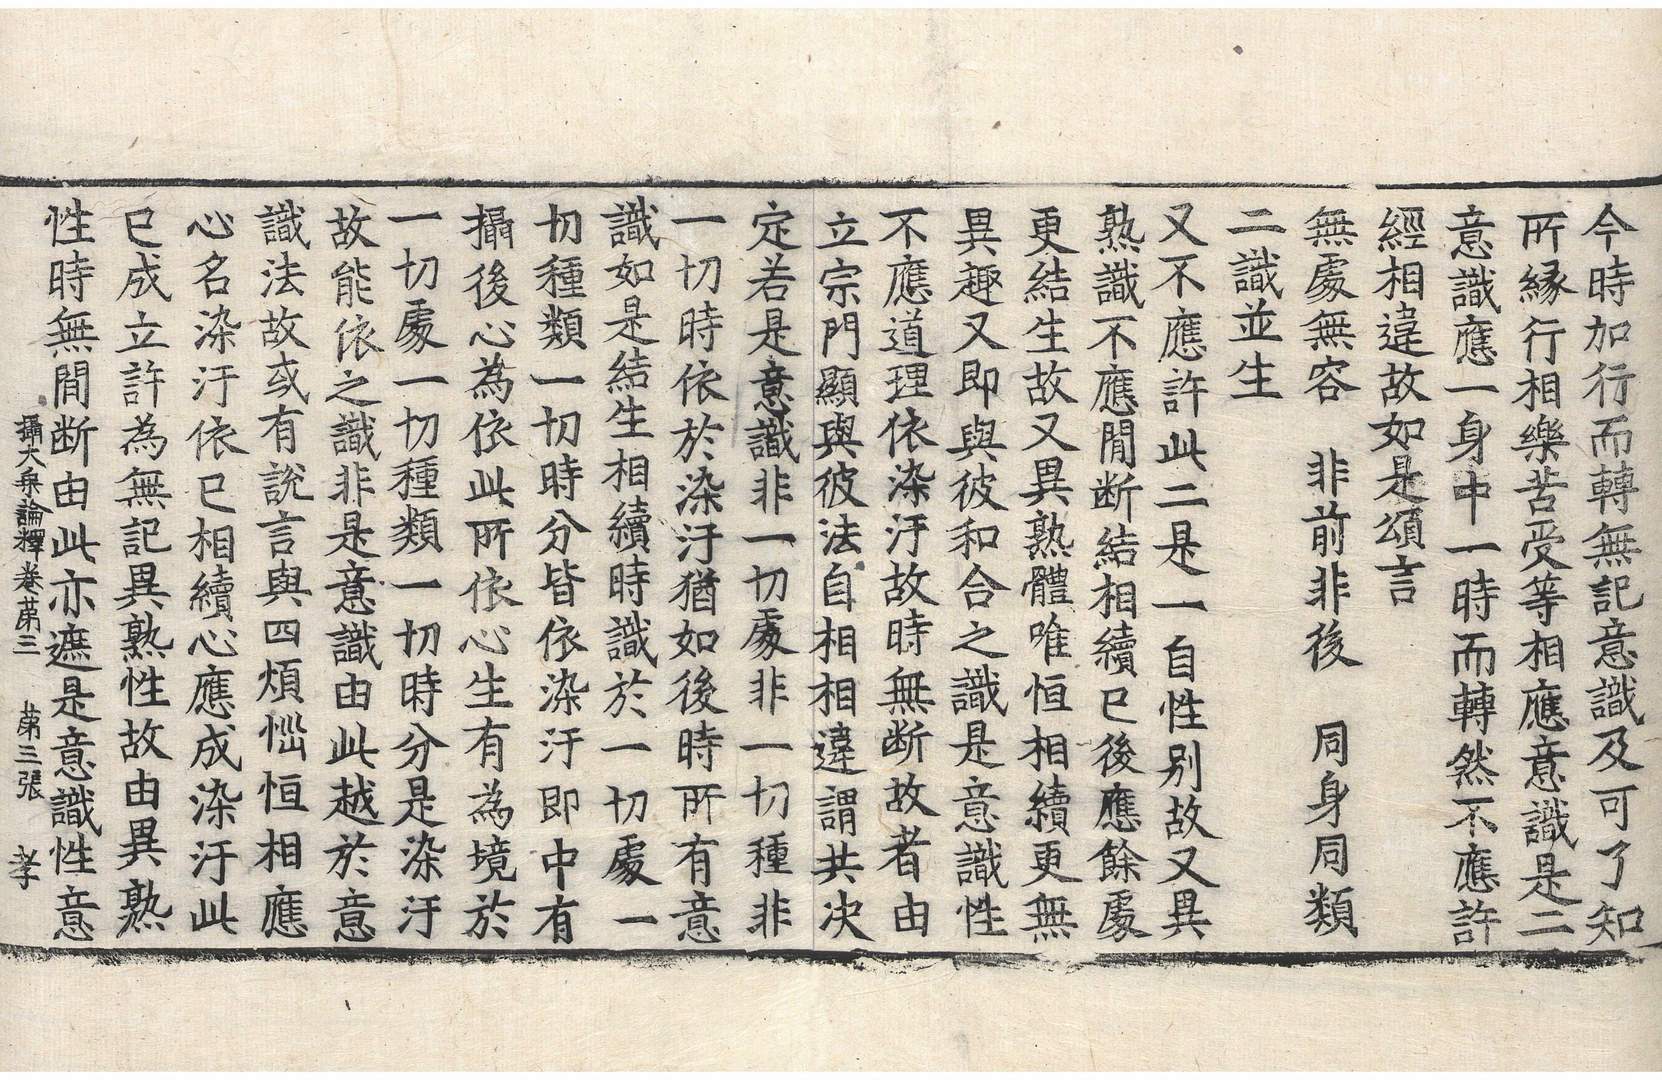 今時加行而轉無記意識及可了知
所縁行相樂苦受等相應意識是二
意識應一身中一時而轉然不應許
經相違故如是頌言
無處無容　非前非後　同身同類
二識並生
又不應許此二是一自性別故又異
熟識不應間断結相續已後應餘處
更結生故又異熟體唯恒相續更無
異趣又即與彼和合之識是意識性
不應道理依染汙故時無断故者由
立宗門顯與彼法自相相違謂共决
定若是意識非一切處非一切種非
一切時依於染汙猶如後時所有意
識如是結生相續時識於一切處一
切種類一切時分皆依染汙即中有
攝後心為依此所依心生有為境於
一切處一切種類一切時分是染汙
故能依之識非是意識由此越於意
識法故或有說言與四煩惱恒相應
心名染汙依已相續心應成染汙此
已成立許為無記異熟性故由異熟
性時無間断由此亦遮是意識性意
攝大乗論釋卷苐三　苐三張　孝